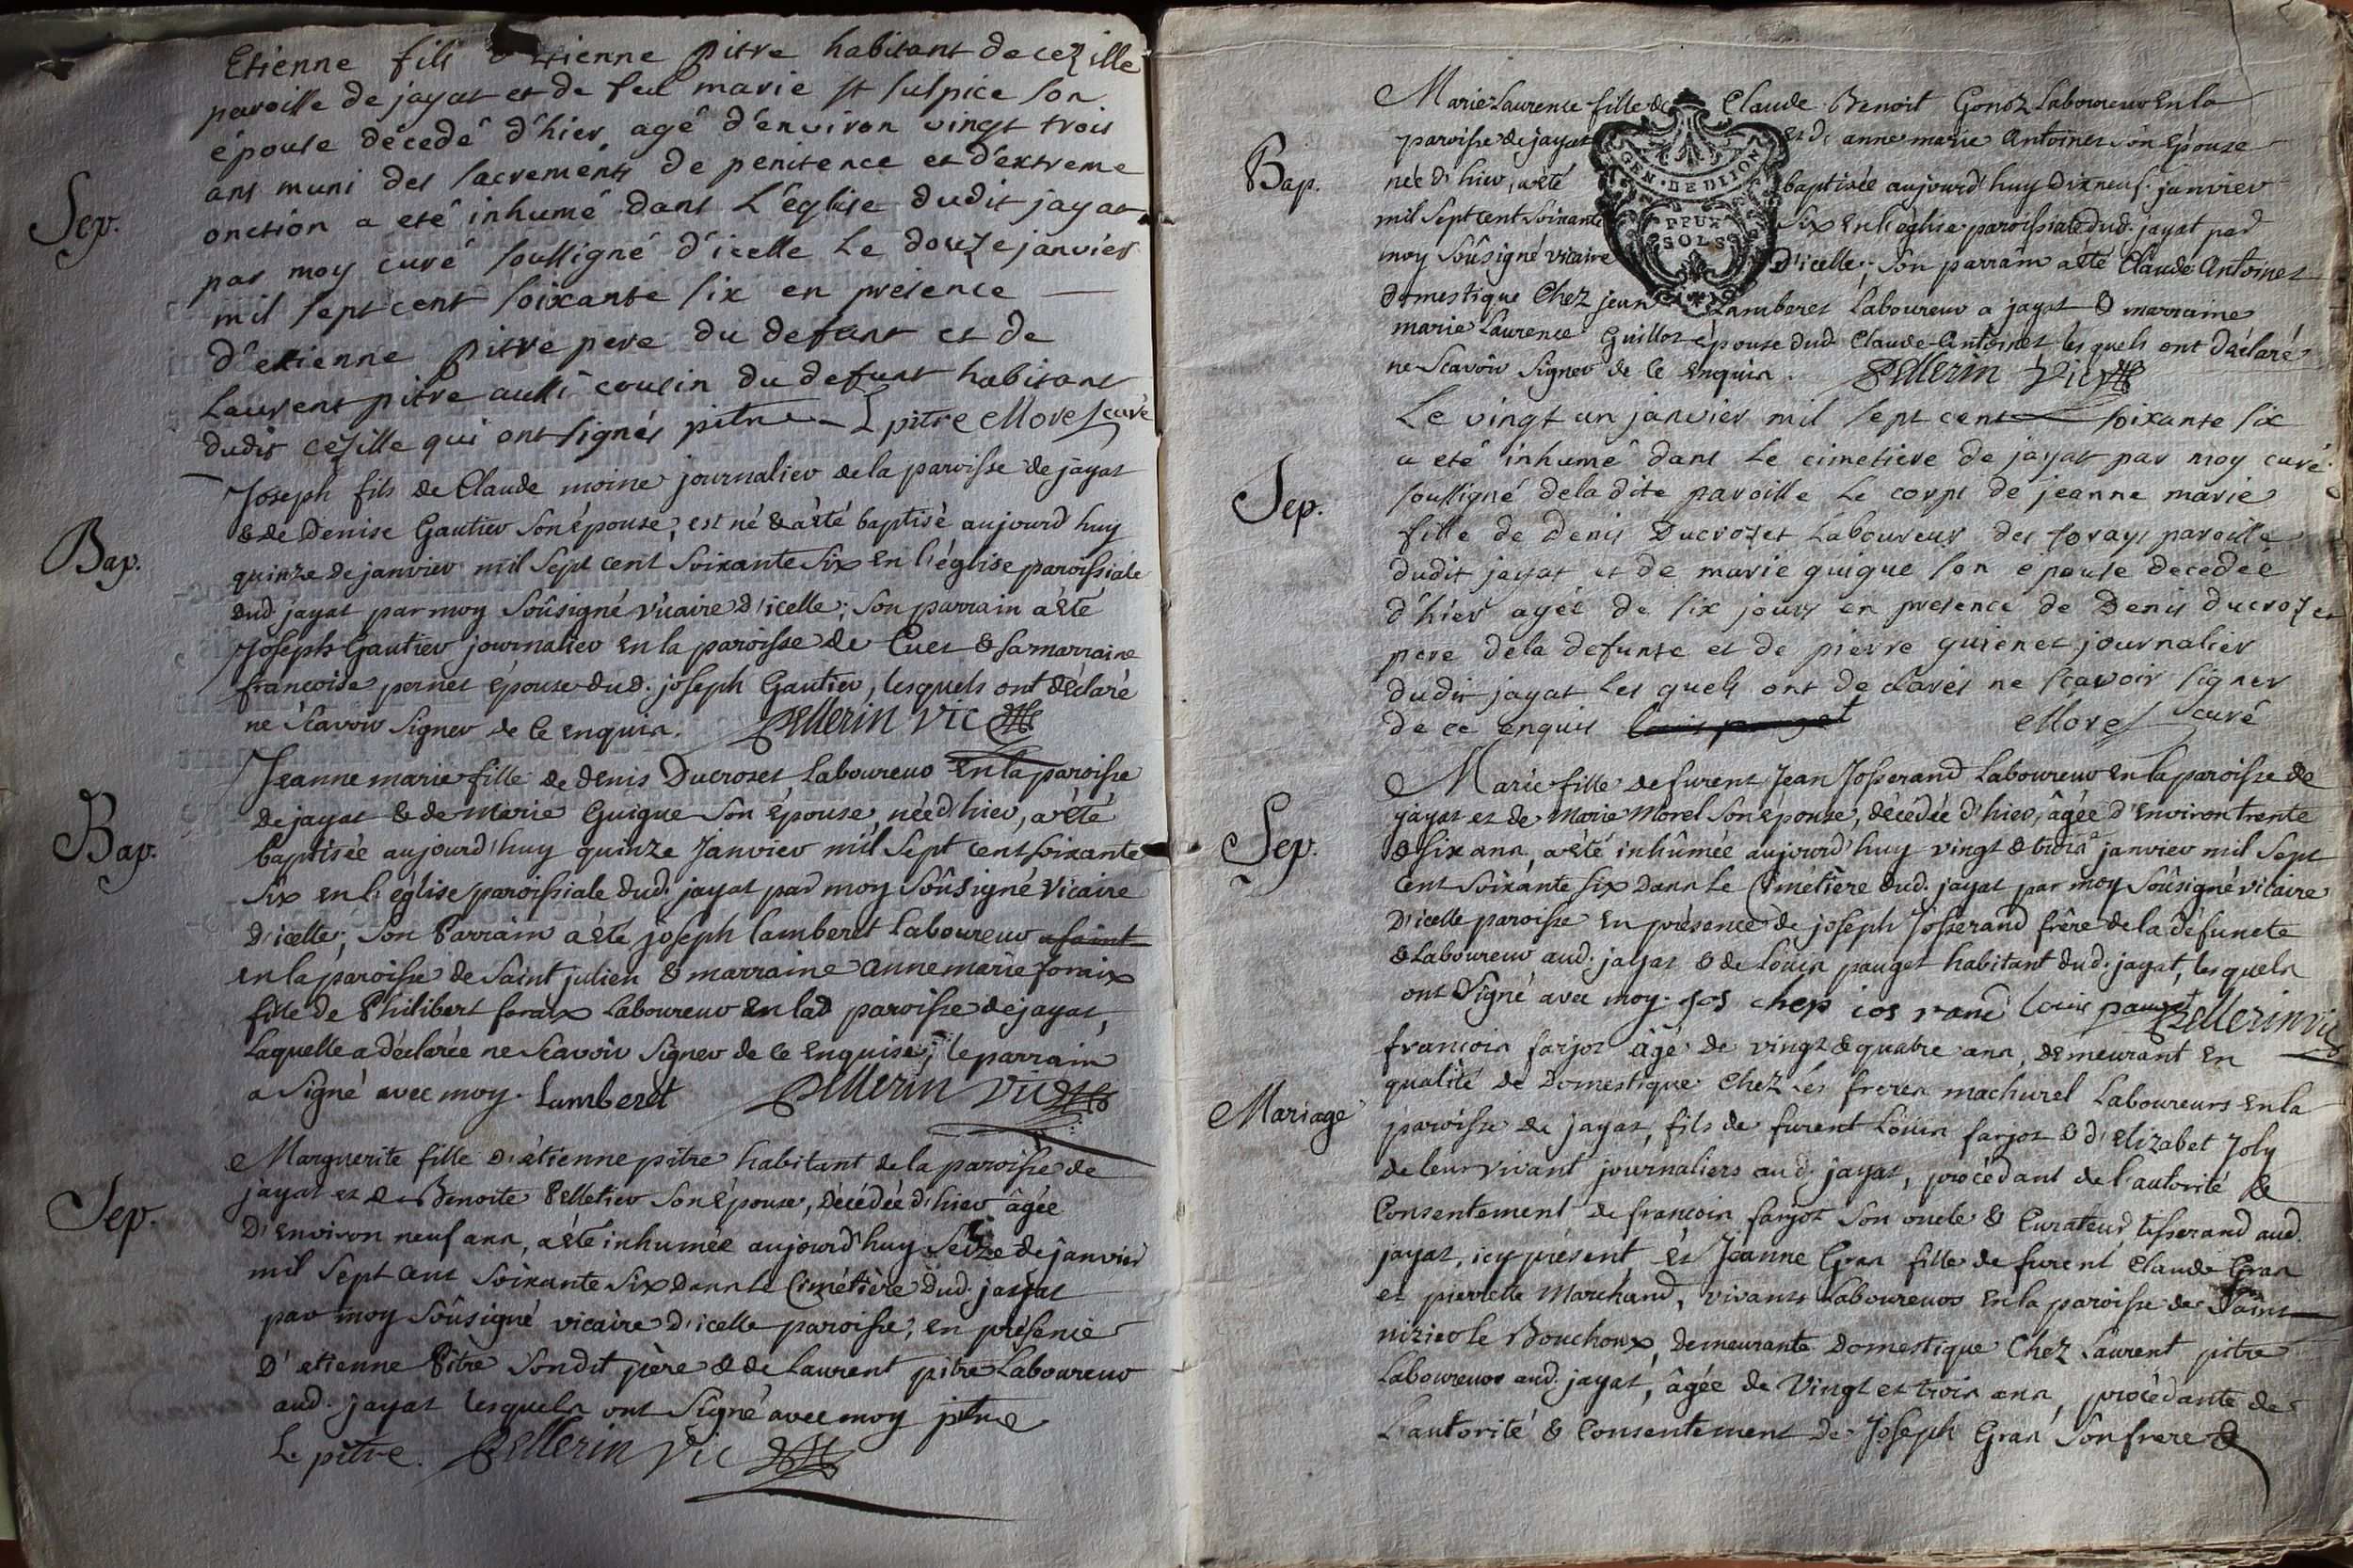 Etienne fils d'etienne pitre habitant de cezille
paroisse de jayat et de feu marie st sulpice son
épouse décedé d'hier agé d'environ vingt trois
Sep.
ans muni des sacrements de penitence et d'extreme
onction a eté inhumé dans L'église dudit jayat
par moy curé soussigné d'icelle Le douze janvier
mil sept cent soixante six en presence
d'etienne pitre pere du defunt et de
Laurent pitre aussi cousin du defunt habitant
dudit cezille qui ont signés pitre L pitre Morel curé
Joseph fils de Claude moine journalier de la paroisse de jayat
Bap.
& de Denise Gautier son épouse, est né & a été baptisé aujourd'huy
quinze de janvier mil Sept cent Soixante Six en l'église paroissiale
dud. jayat par moy Soûsigné vicaire d'icelle; Son parrain a été
Joseph Gautier journalier en la paroisse de Cuet & sa marraine
francoise pernet épouse dud. joseph Gautier, lesquels ont déclaré
ne Scavoir Signer de ce enquis. Pellerin vic
Jeanne marie fille de denis Ducroset Laboureur en la paroisse
de jayat & de marie Guigue Son épouse, née d'hier, a été
Bap.
baptisée aujourd'huy quinze Janvier mil Sept cent soixante
Six en l'église paroissiale dud. jayat par moy Soûsigné vicaire
d'icelle; Son Parrain a été joseph Lamberet Laboureur a saint
en la paroisse de Saint julien & marraine anne marie foraix
fille de Philibert foraix Laboureur en lad paroisse de jayat,
Laquelle a déclarée ne Scavoir Signer de ce enquise; le parrain
a Signé avec moy. Lamberet Pellerin vic
Marguerite fille d'étienne pitre habitant de la paroisse de
jayat et de Benoite Pelletier Son épouse, décédée d'hier âgée
Sep.
D'environ neuf ans, a été inhumée aujourd'huy Seize de janvier
mil Sept cent Soixante Six dans le Cimétière dud. jayat
par moy Soûsigné vicaire d'icelle paroisse, en présence
D'etienne Pitre Sondit père & de Laurent pitre Laboureur
aud. jayat lesquels ont Signé avec moy pitre
L pitre. Pellerin Vic
Marie Laurence fille de Claude Benoit Gonoz Laboureur en la
paroisse de jayat et de anne marie Antoinet son épouse
Bap.
née d'hier, a été baptisée aujourd'huy dixneuf janvier
mil Sept cent Soixante Six en l'église paroissiale dud. jayat par
moy Soûsigné vicaire d'icelle; Son parrain a été Claude Antoinet
GEN. DE DIJON
DEUX
SOLS
domestique Chez jean Lamberet Laboureur a jayat & marraine
marie Laurence Guillot épouse dud. Claude Antoinet lesquels ont déclaré
ne Scavoir Signer de ce enquis. Pellerin Vic
Le vingt un janvier mil sept cent soixante six
a eté inhumé dans Le cimetiere de jayat par moy curé
Sep.
soussigné dela dite paroisse Le corps de jeanne marie
fille de Denis Ducrozet Laboureur des forays paroisse
dudit jayat et de marie guigue son épouse decedée
d'hier agée de six jours en presence de Denis ducrozet
pere dela defunte et de pierre guienet journalier
dudit jayat Les quels ont declarés ne scavoir signer
de ce enquis Louis pauget Morel curé
Marie fille de furent Jean Josserand Laboureur en la paroisse de
jayat et de Marie Morel Son épouse, décédée d'hier, âgée d'environ trente
Sep.
& six ans, a été inhûmée aujourd'huy vingt & trois janvier mil Sept
Cent Soixante six dans Le Cimétière dud. jayat par moy Soûsigné vicaire
D'icelle paroisse en présence de joseph Josserand frère de la défuncte
& Laboureur aud. jayat & de Louis pauget habitant dud. jayat, lesquels
ont Signé avec moy. jos chep jos rand Louis pauget Pellerin vic
francois farjot âgé de vingt & quatre ans, demeurant en
qualité de Domestique Chez Les freres machurel Laboureurs en la
Mariage
paroisse de jayat, fils de furent Louis farjot & d'Elizabet Joly
de leur vivant journaliers aud. jayat, procédant de l'autorité &
Consentement de francois farjot Son oncle & Curateur tisserand aud.
jayat, icy présent, et Jeanne Gras fille de furent Claude Gras
et pierrette Marchand, vivants Laboureurs en la paroisse de Saint
nizier le Bouchoux, demeurante Domestique Chez Laurent pitre
Laboureur aud. jayat, âgée de Vingt et trois ans, procédante de
L'autorité & Consentement de Joseph Gras Son frere &